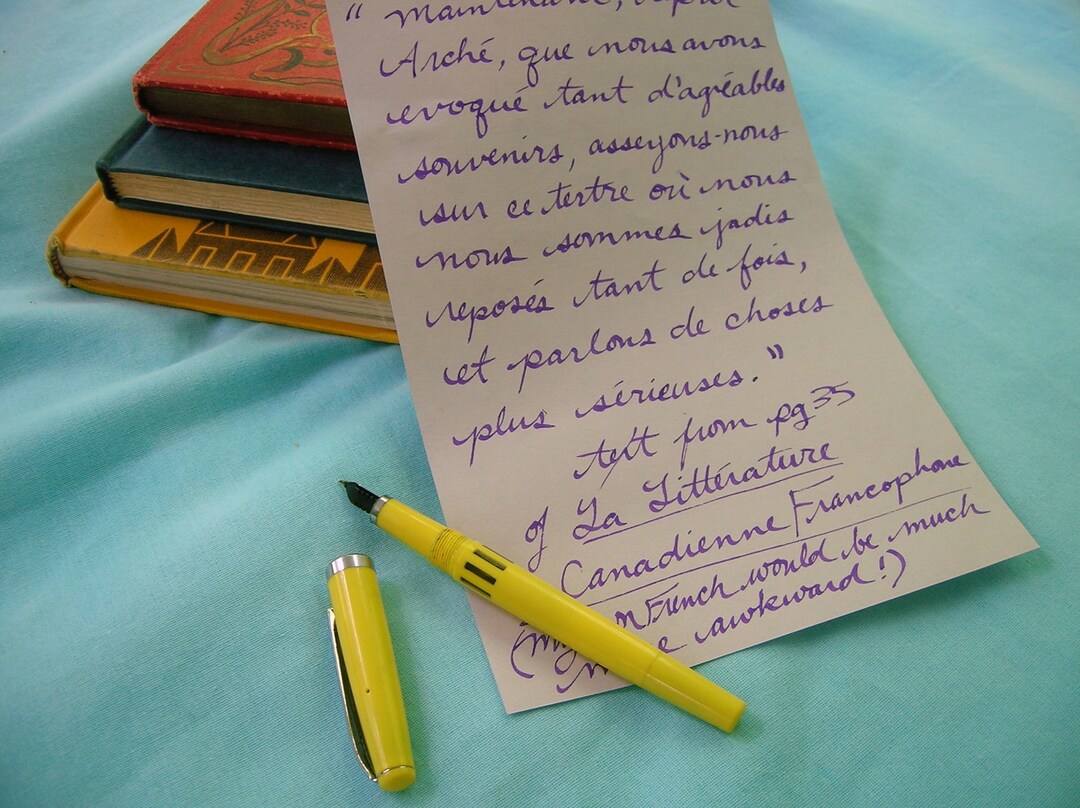 " Maintenant, reprit
Arché, que nous avons
evoqué tant d'agréables
souvenirs, asseyons-nous
sur ce tertre où nous
nous sommes jadis
reposés tant de fois,
et parlons de choses
plus sérieuses."
text from pg 35
of La Littérature
Canadienne Francophone
(my own French would be much
more awkward!)